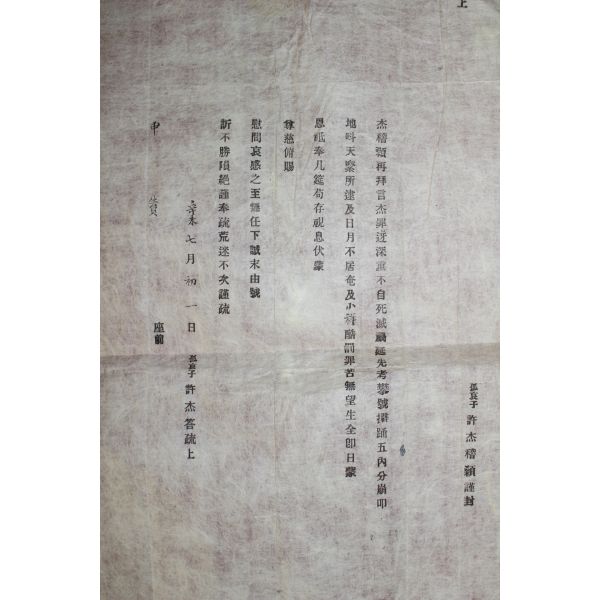 上
孤哀子 許杰稽顙謹封
杰稽顙再拜言杰罪逆深重不自死滅禍延先考攀號擗踊五內分崩叩
地叫天無所逮及日月不居奄及小祥酷罰罪苦無望生全卽日蒙
恩祗奉几筵苟存視息伏蒙
尊慈俯賜
慰問哀感之至無任下誠末由號
訴不勝隕絕謹奉疏荒迷不次謹疏
辛未七月初一日 孤哀子 許杰答疏上
申 座前